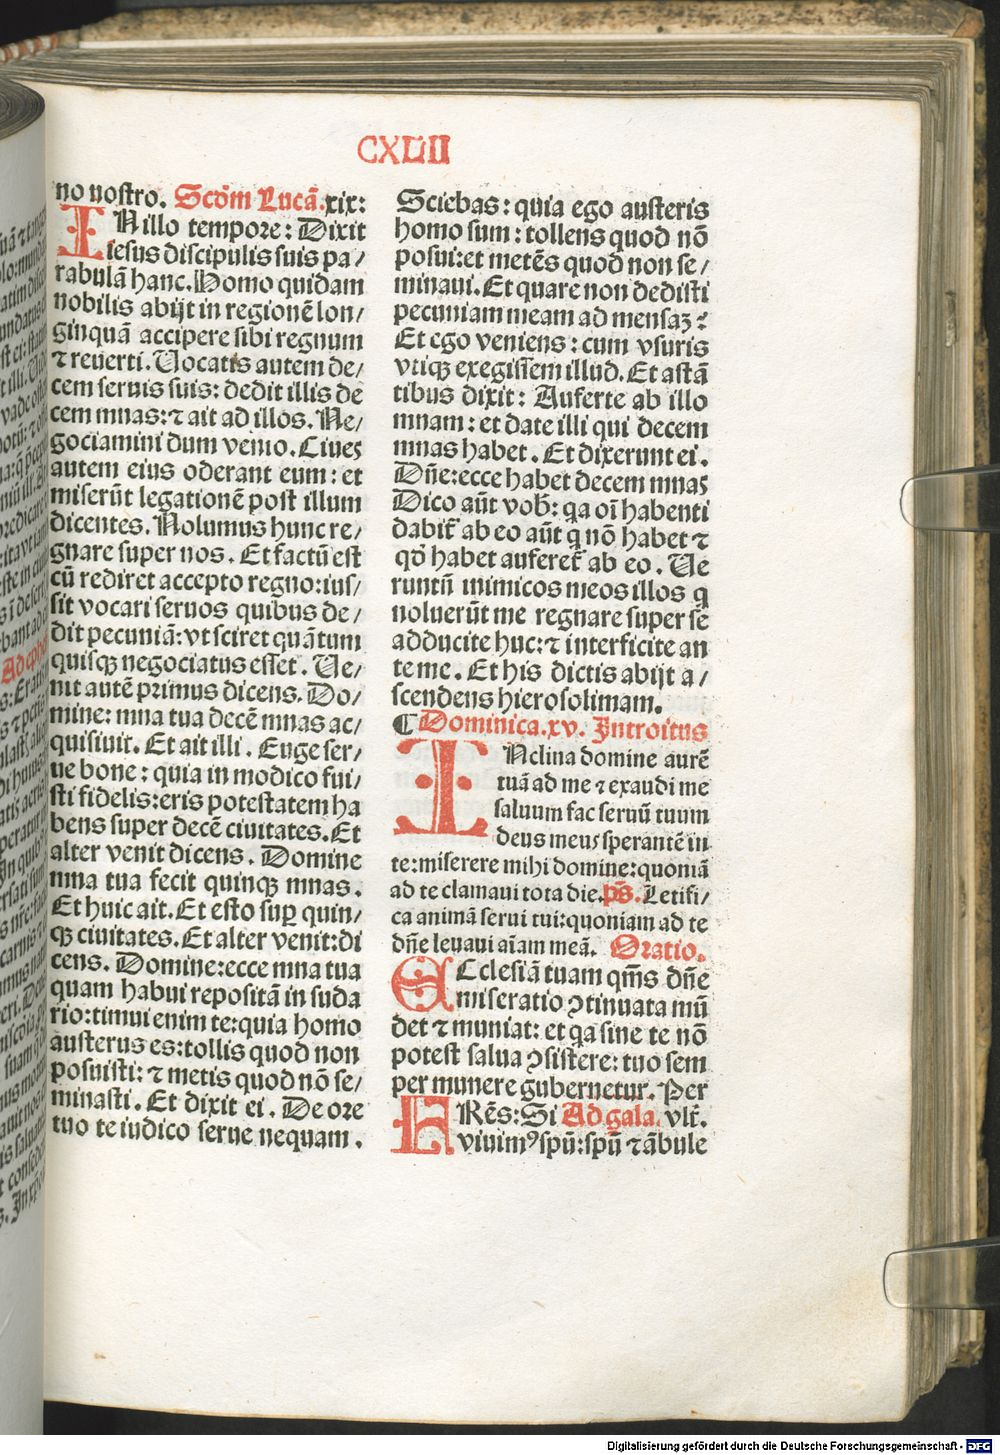 CXLII
no nostro. Scd̄m Lucā.xix:
IN illo tempore: Dixit
iesus discipulis suis pa/
rabulā hanc. Homo quidam
nobilis abijt in regionē lon/
ginquā accipere sibi regnum
⁊ reuerti. Uocatis autem de/
cem seruis suis: dedit illis de
cem mnas: ⁊ ait ad illos. Ne/
gociamini dum venio. Ciues
autem eius oderant eum: et
miserūt legationē post illum
dicentes. Nolumus hunc re/
gnare super nos. Et factū est
cū rediret accepto regno: ius/
sit vocari seruos quibus de/
dit pecuniā: vt sciret quātum
quisqꝫ negociatus esset. Ue/
nit autē primus dicens. Do/
mine: mna tua decē mnas ac/
quisiuit. Et ait illi. Euge ser/
ue bone: quia in modico fui/
sti fidelis: eris potestatem ha
bens super decē ciuitates. Et
alter venit dicens. Domine
mna tua fecit quinqꝫ mnas.
Et huic ait. Et esto suꝑ quin/
qꝫ ciuitates. Et alter venit: di
cens. Domine: ecce mna tua
quam habui repositā in suda
rio: timui enim te: quia homo
austerus es: tollis quod non
posuisti: ⁊ metis quod nō se/
minasti. Et dixit ei. De ore
tuo te iudico serue nequam.
Sciebas: quia ego austeris
homo sum: tollens quod nō
posui: et metēs quod non se/
minaui. Et quare non dedisti
pecuniam meam ad mensaꝫ?
Et ego veniens: cum vsuris
vtiqꝫ exegissem illud. Et astā
tibus dixit: Auferte ab illo
mnam: et date illi qui decem
mnas habet. Et dixerunt ei.
Dn̄e: ecce habet decem mnas
Dico aūt vob̄: qa oī habenti
dabit̄ ab eo aūt q nō habet ⁊
qd̄ habet auferet̄ ab eo. Ue
runtn̄ inimicos meos illos q
noluerūt me regnare super se
adducite huc: ⁊ interficite an
te me. Et his dictis abijt a/
scendens hierosolimam.
¶ Dominica.xv. Introitus
INclina domine aurē
tuā ad me ⁊ exaudi me
saluum fac seruū tuum
deus meus sperantē in
te: miserere mihi domine: quoniā
ad te clamaui tota die. ps̄. Letifi/
ca animā serui tui: quoniam ad te
dn̄e leuaui aīam meā. Oratio.
ECclesiā tuam qm̄s dn̄e
miseratio ꝯtinuata mū
det ⁊ muniat: et qa sine te nō
potest salua ꝯsistere: tuo sem
per munere gubernetur. Per
FRēs: Si Ad gala. vlt̄.
viuimꝰ spū: spū ⁊ ābule
Digitalisierung gefördert durch die Deutsche Forschungsgemeinschaft - DFG